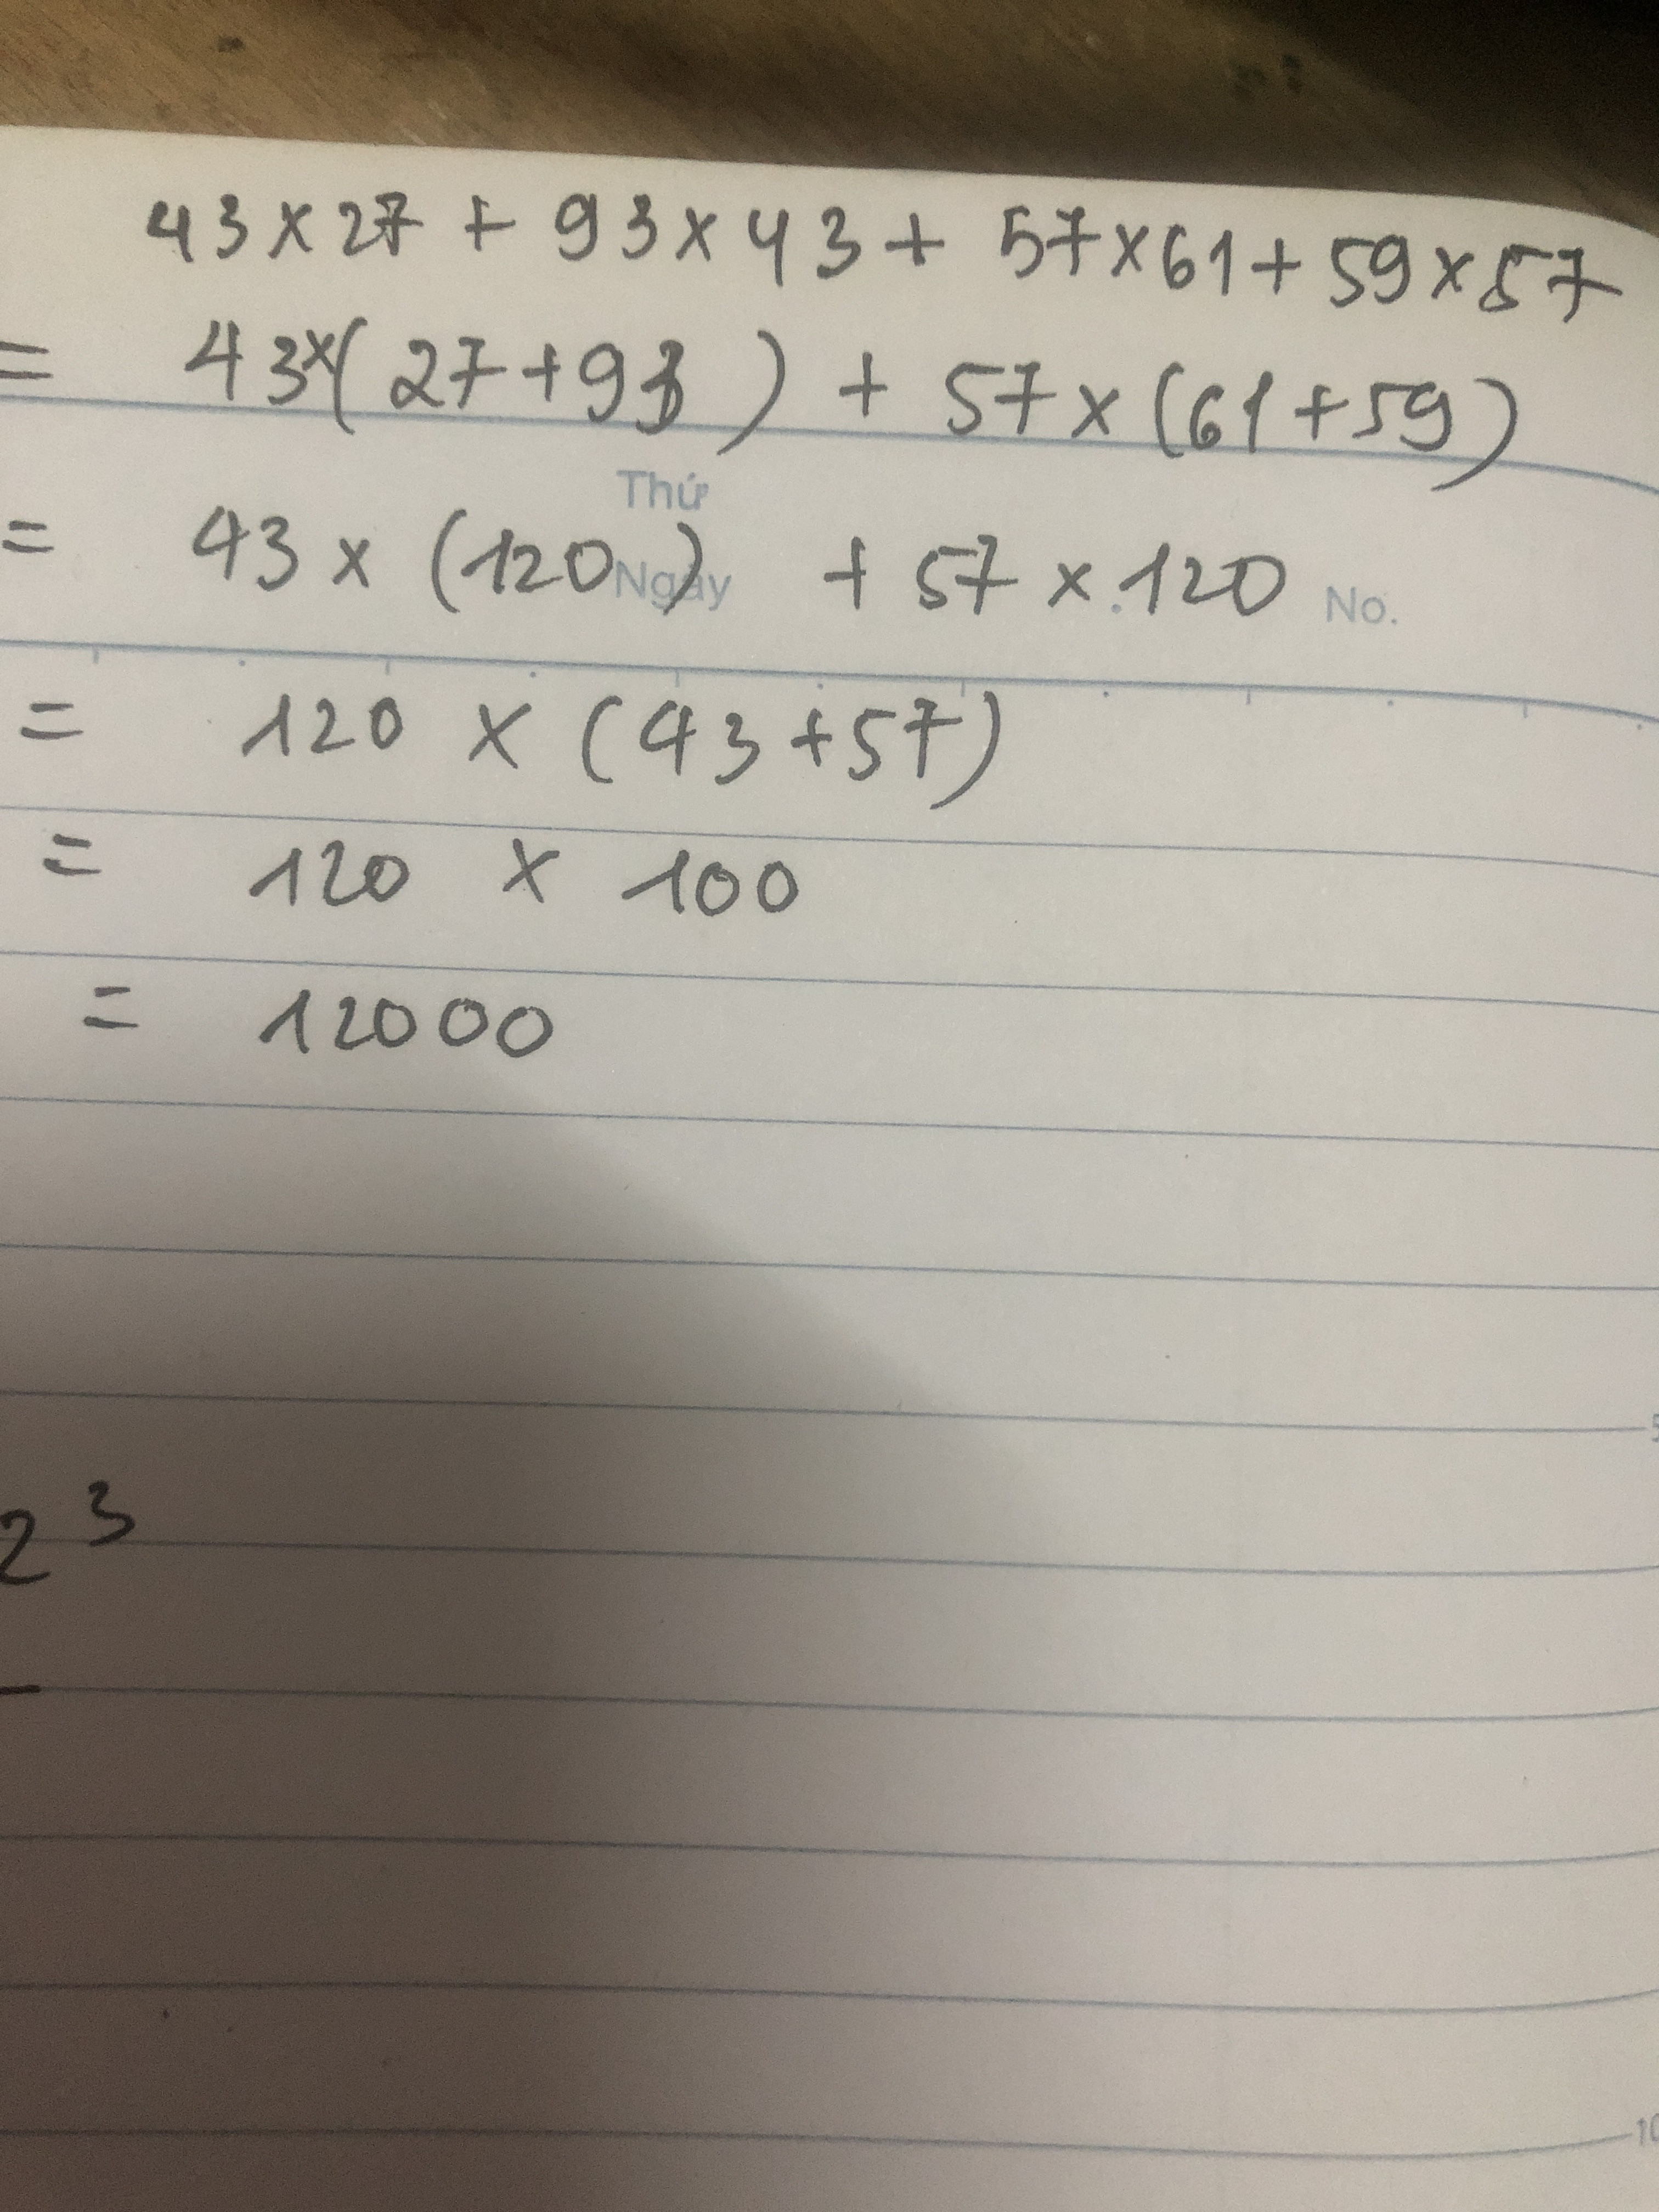 43×27 + 93×43 + 57×61 + 59×57
= 43×(27+93) + 57×(61+59)
Thứ
= 43 × (120) + 57 × 120
Ngày No.
= 120 × (43+57)
= 120 × 100
= 12000
5
2³
10